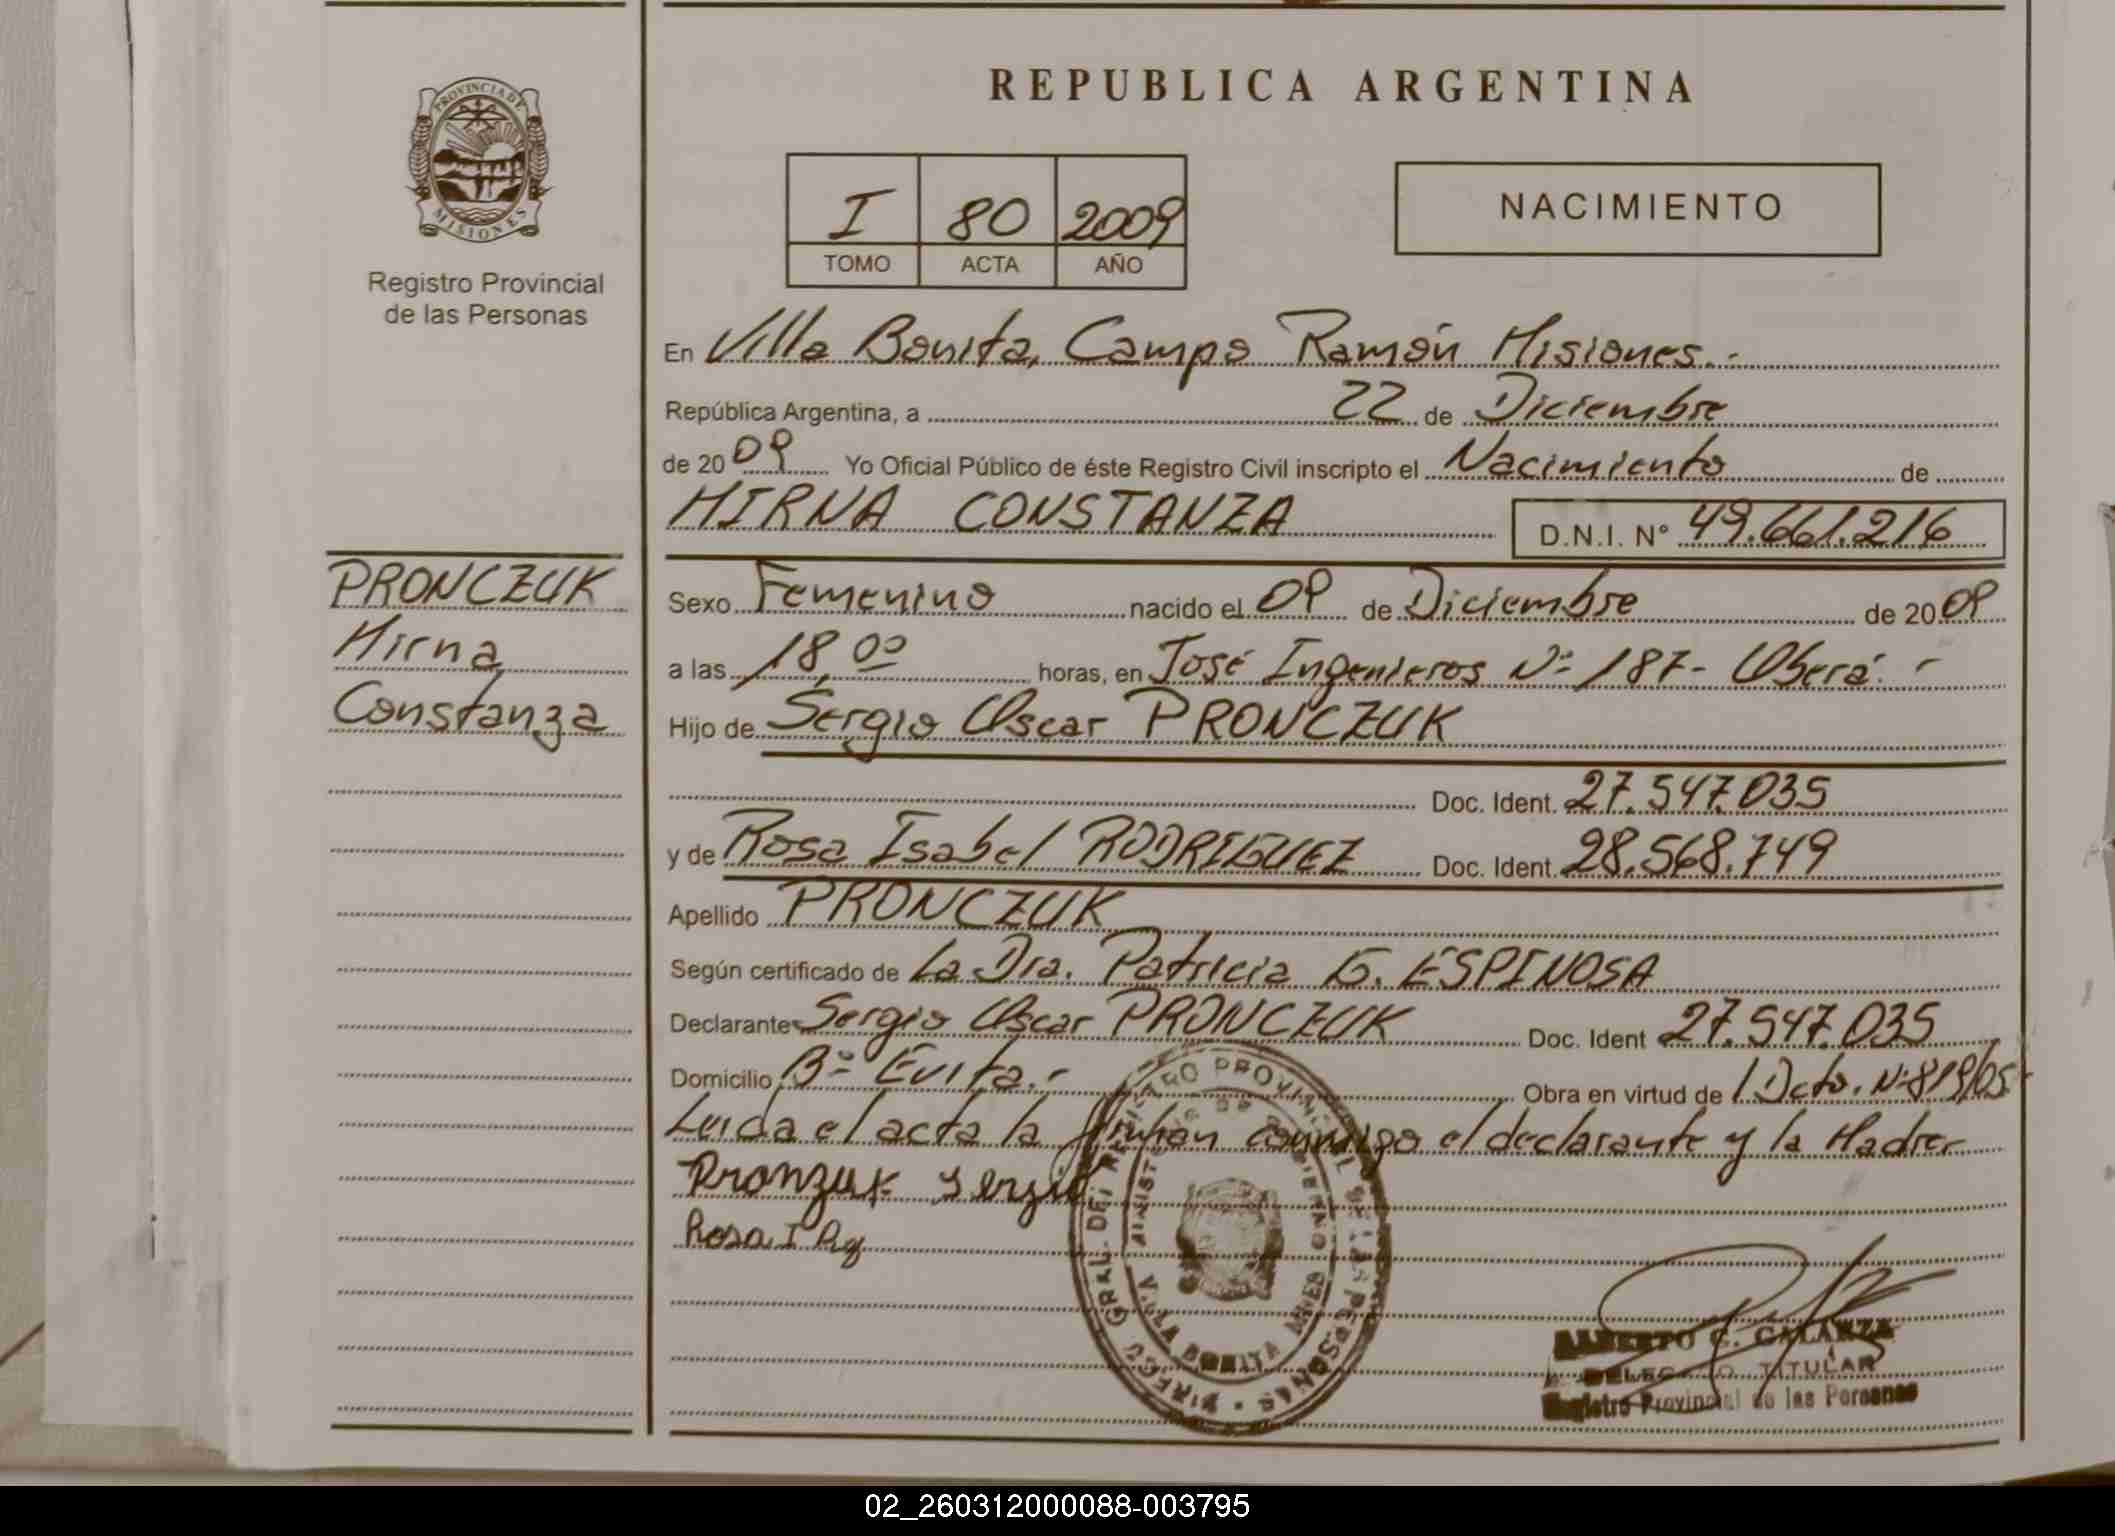 REPUBLICA ARGENTINA
PROVINCIA DE
MISIONES
Registro Provincial
de las Personas
I 80 2009
TOMO ACTA AÑO
NACIMIENTO
En Villa Bonita, Campo Ramón Misiones.-
República Argentina, a 22 de Diciembre
de 2009 Yo Oficial Público de éste Registro Civil inscripto el Nacimiento de
MIRNA CONSTANZA D.N.I. Nº 49.661.216
PRONCZUK
Mirna
Constanza
Sexo Femenino nacido el 09 de Diciembre de 2009
a las 18,00 horas, en José Ingenieros Nº 187- Oberá.-
Hijo de Sergio Oscar PRONCZUK
Doc. Ident. 27.547.035
y de Rosa Isabel RODRIGUEZ Doc. Ident. 28.568.749
Apellido PRONCZUK
Según certificado de La Dra. Patricia G. ESPINOSA
Declarante Sergio Oscar PRONCZUK Doc. Ident 27.547.035
Domicilio Bº Evita.- Obra en virtud de / Dcto. Nº 819/05-
Leida el acta la firman conmigo el declarante y la Madre.-
Pronzuk sergio
Rosa I
DIREC. GRAL. DEL REGISTRO PROVINCIAL DE LAS PERSONAS
MINISTERIO DE GOBIERNO
VILLA BONITA MNES
ALBERTO C. GALARZA
DELEGADO TITULAR
Registro Provincial de las Personas
02_260312000088-003795